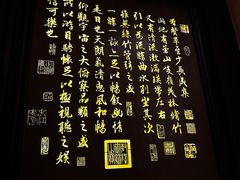 羣賢畢至少長咸集
此地有崇山峻領茂林脩竹
又有清流激湍暎帶左右
引以為流觴曲水列坐其次
雖無絲竹管弦之盛
一觴一詠亦足以暢敘幽情
是日也天朗氣清惠風和暢
仰觀宇宙之大俯察品類之盛
所以遊目騁懷足以極視聽之娛
信可樂也